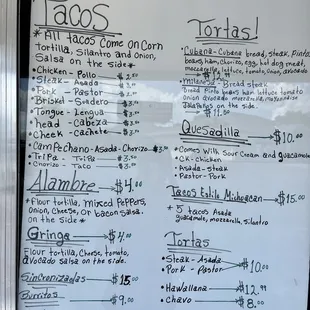 Tacos
* All tacos Come on Corn
tortilla, Silantro and Onion,
Salsa on the side *
• Chicken - Pollo
• Steak - Asada
• Pork - Pastor
• Brisket - Suadero
• Tongue - Lengua
• head - Cabeza
• Cheek - Cachete
• Campechano - Asada - Chorizo
• Tripa - Tripa
• Chorizo - Taco
Alambre $4.00
* Flour tortilla, mixed Peppers,
Onion, Cheese, Or bacon Salsa.
on the side *
Gringa $4.00
Flour tortilla, Cheese, Tomato,
avocado Salsa on the side.
Sincronizadas $15.00
Burritos $9.00
Tortas!
• Cubana - Cubana bread, steak, Pinto
beans, ham, Chorizo, egg, hot dog meat,
mozzarella, lettuce, tomato, Onion, avocado
Bread steak
Bread Pinto beans ham lettuce tomato
Onion avocado mozzarella, mayonnaise
Jalapenos on the side.
Quesadilla $10.00
• Comes With Sour Cream and guacamole
• CK - chicken
• Steak - Asada
• Pastor - Pork
Tacos Estilo Michoacan $15.00
* 5 tacos Asada
guacamole, mozzarella, silantro
Tortas
• Steak - Asada
• Pork - Pastor $10.00
• Hawaiiana $12.99
• Chavo $8.00